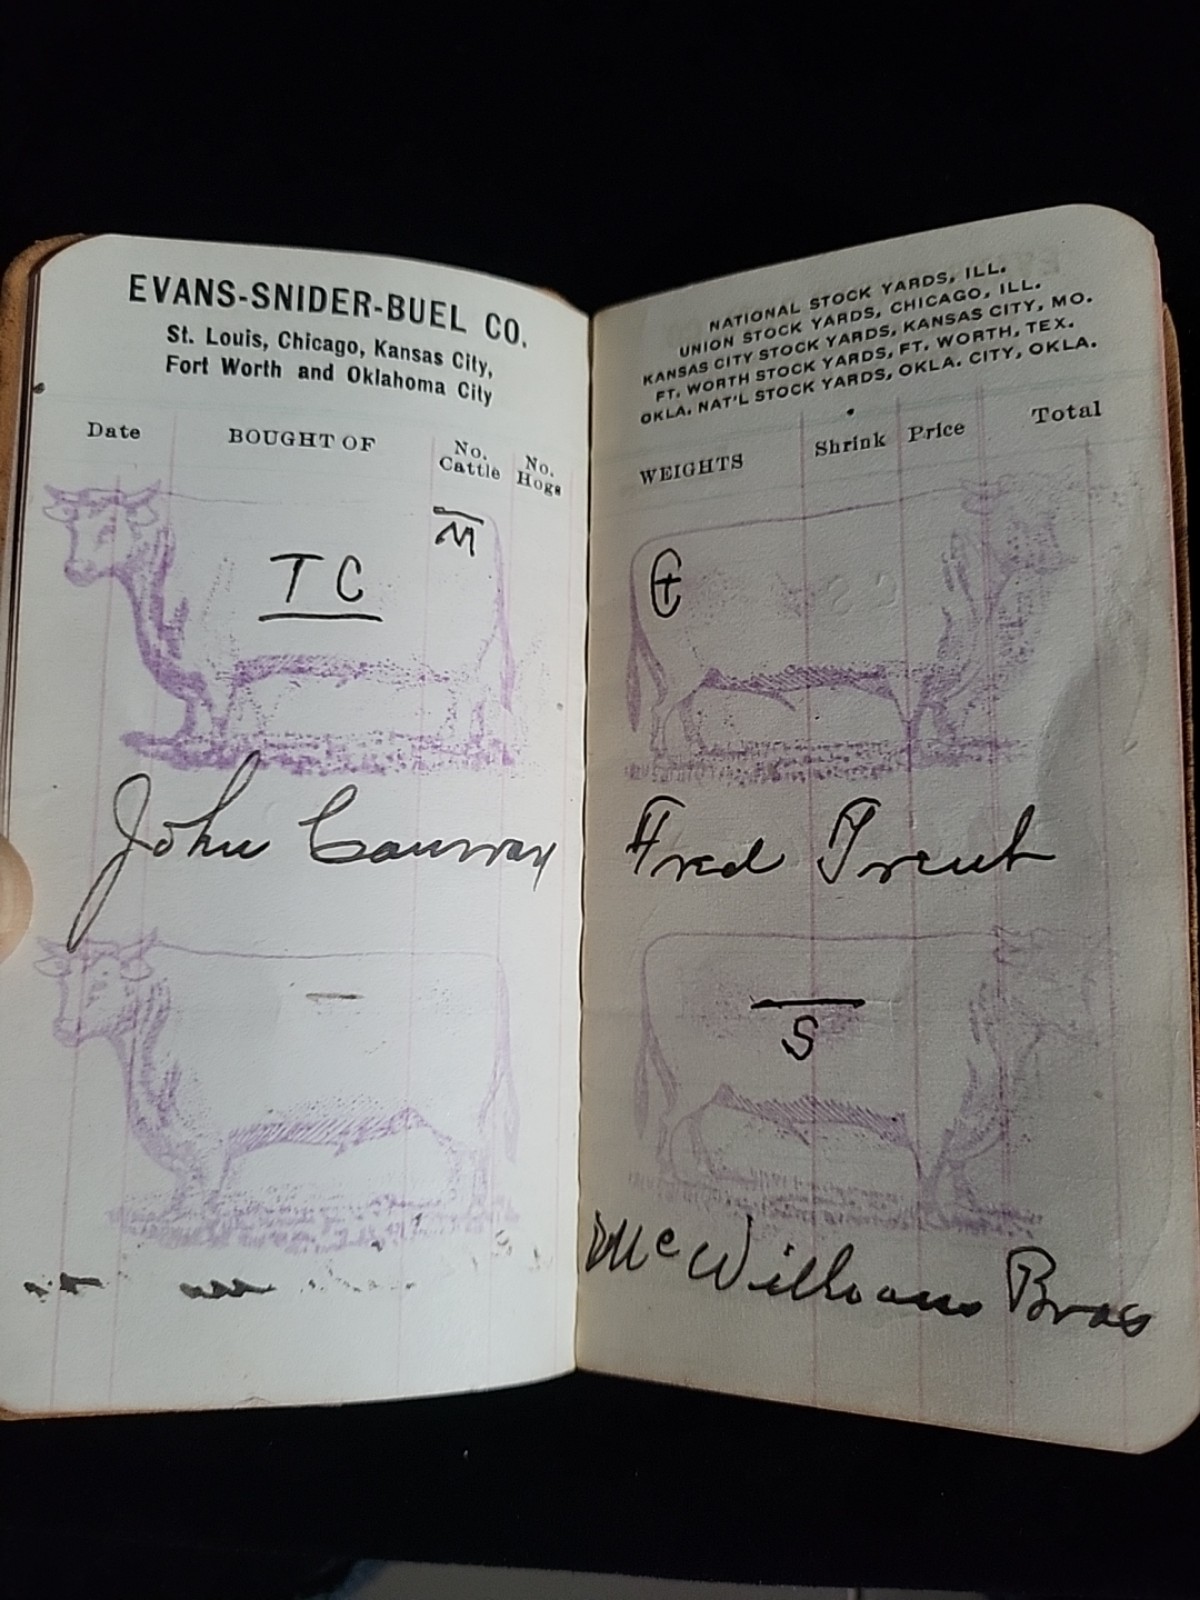 EVANS-SNIDER-BUEL CO.
St. Louis, Chicago, Kansas City,
Fort Worth and Oklahoma City
Date BOUGHT OF No. Cattle No. Hogs
M
T C
John Conway
NATIONAL STOCK YARDS, ILL.
UNION STOCK YARDS, CHICAGO, ILL.
KANSAS CITY STOCK YARDS, KANSAS CITY, MO.
FT. WORTH STOCK YARDS, FT. WORTH, TEX.
OKLA. NAT'L STOCK YARDS, OKLA. CITY, OKLA.
WEIGHTS Shrink Price Total
Fred Trent
S
McWilliams Bros